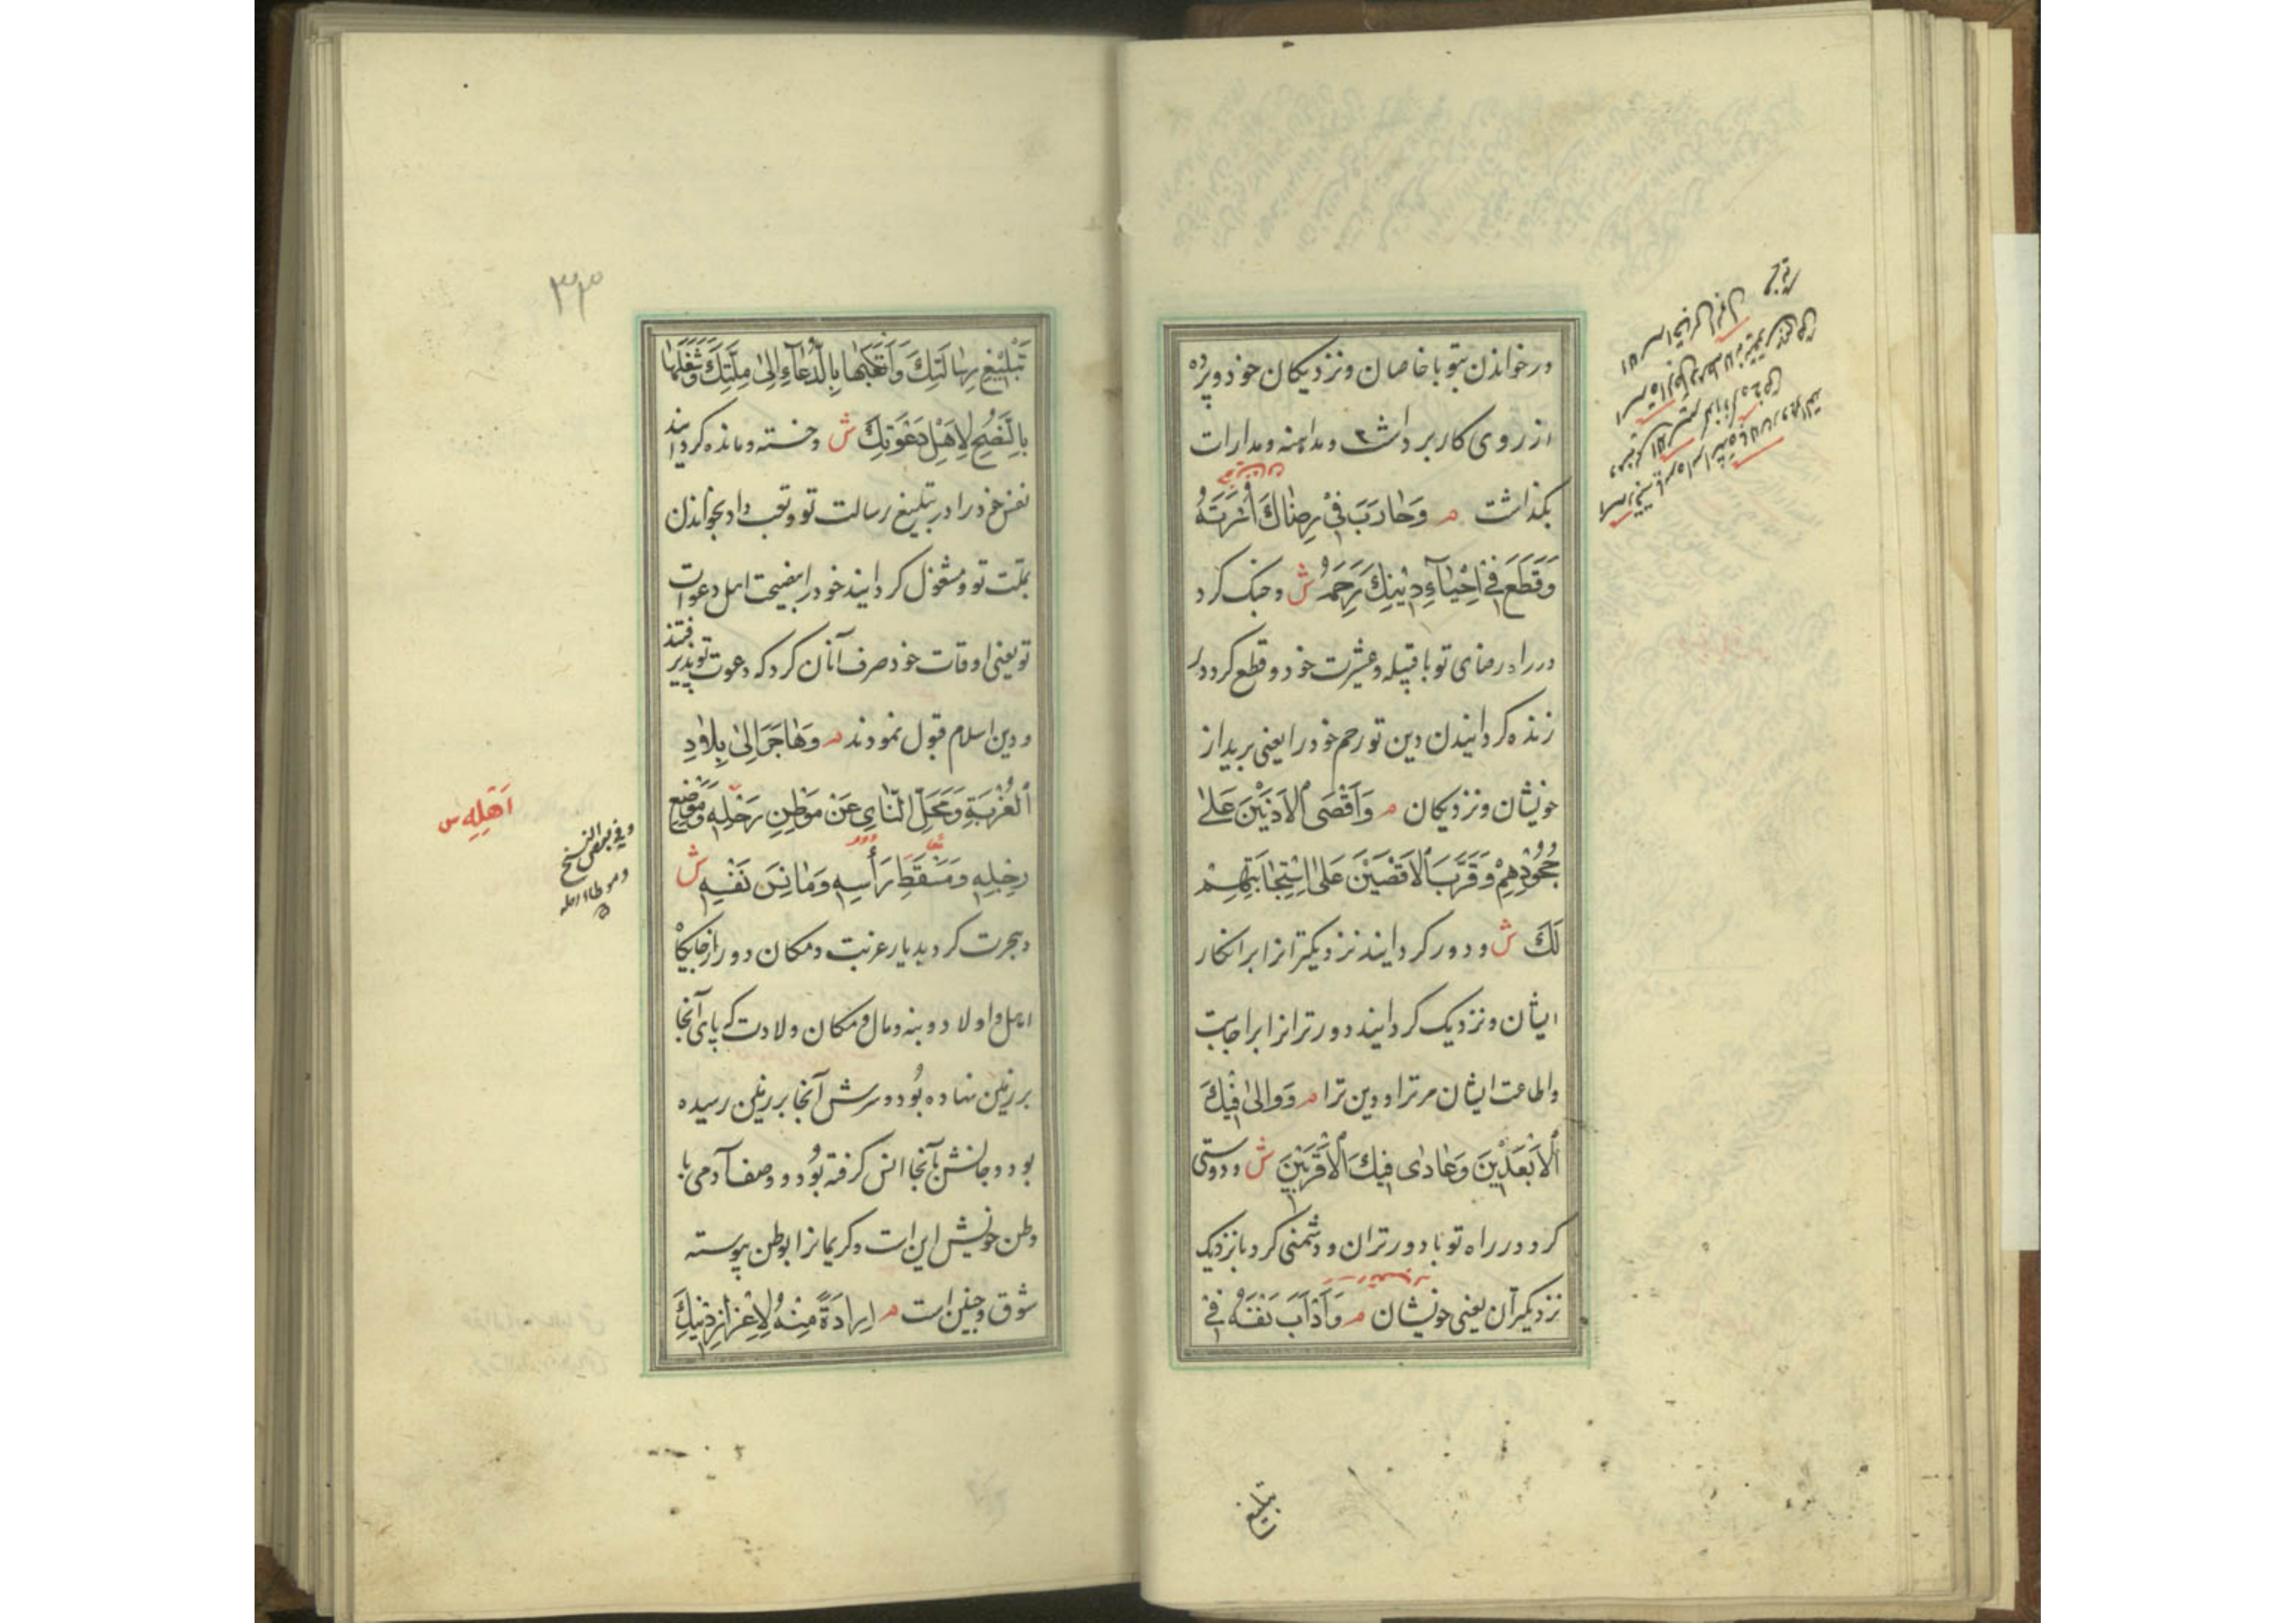 در خواندن بتو با خاصان و نزدیکان خود و پرده
از روی کار برداشت و مداهنه و مدارات
بگذاشت م وَحَارَبَ فِي رِضَاكَ أُسْرَتَهُ
وَقَطَعَ فِي اِحْيَاءِ دِينِكَ رَحِمَهُ ش و جنک کرد
در راه رضای تو با قبیله و عشیرت خود و قطع کرد در
زنده کردانیدن دین تو رحم خود را یعنی برید از
خویشان و نزدیکان م وَاَقْصَى الْاَدْنَيْنَ عَلىٰ
جُحُودِهِمْ وَقَرَّبَ الْاَقْصَيْنَ عَلَى اسْتِجَابَتِهِمْ
لَكَ ش و دور کردانید نزدیکترانرا بر انکار
ایشان و نزدیک کردانید دورترانرا بر اجابت
و اطاعت ایشان مر ترا و دین ترا م وَوَالىٰ فِيكَ
الْاَبْعَدِينَ وَعَادٰى فِيكَ الْاَقْرَبِينَ ش و دوستی
کرد در راه تو با دورتران و دشمنی کرد با نزدیک
نزدیکتران یعنی خویشان م وَاَدْاَبَ نَفْسَهُ فِي
تبلیغ
٣٣
تَبْلِيغِ رِسَالَتِكَ وَاَتْعَبَهَا بِالدُّعَاءِ اِلىٰ مِلَّتِكَ وَشَغَلَهَا
بِالنُّصْحِ لِاَهْلِ دَعْوَتِكَ ش و خسته و مانده کردانید
نفس خود را در تبلیغ رسالت تو و تعب داد بخواندن
بملت تو و مشغول کردانید خود را بنصیحت اهل دعوت
تو یعنی اوقات خود صرف آنان کرد که دعوت تو پذیرفتند
و دین اسلام قبول نمودند م وَهَاجَرَ اِلىٰ بِلَادِ
الْغُرْبَةِ وَمَحَلِّ النَّأْيِ عَنْ مَوْطِنِ رَحْلِهِ وَمَوْضِعِ
رِجْلِهِ وَمَسْقَطِ رَأْسِهِ وَمَأْنَسِ نَفْسِهِ ش
و هجرت کرد بدیار غربت و مکان دور از جایکاه
اهل و اولاد و بنه و مال و مکان ولادت که پای آنجا
بر زمین نهاده بود و سرش آنجا بر زمین رسیده
بود و جانش بآنجا انس کرفته بود و وصف آدمی با
وطن خویش این است و کریمانرا بوطن پیوسته
شوق و حنین است م اِرَادَةً مِنْهُ لِاِعْزَازِ دِينِكَ
اَهْلِهِ س
وفی بعض النسخ
وموطا رحله